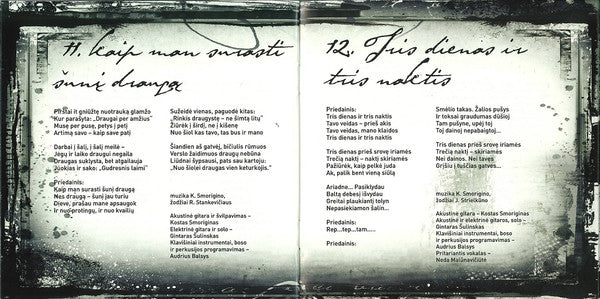 11. kaip man surasti
šunį draugą
Piršlai it gniūžtę nuotrauką glamžo
Kur parašyta: „Draugai per amžius"
Muse per pusę, petys į petį
Artimą savo – kaip save patį
Darbai į šalį, į šalį meilė –
Jėgų ir laiko draugui negaila
Draugas suklysta, bet atgailauja
Juokias ir sako: „Gudresnis laimi"
Priedainis:
Kaip man surasti šunį draugą
Nes drauga – šunį jau turiu
Dieve, prašau mane apsaugok
Ir nuo protingų, ir nuo kvailių
Sužeidė vienas, paguodė kitas:
„Rinkis draugystę – ne šimtą litų"
Žiūrėk į širdį, ne į kišenę
Nuo šiol kas tavo, tas bus ir mano
Šiandien aš gatvėj, bičiulis rūmuos
Versle žaidimuos draugų nebūna
Liūdnai šypsausi, pats sau kartoju:
„Nėra geriau draugas vien keturkojis."
muzika K. Smorigino,
žodžiai R. Stankevičiaus
Akustinė gitara ir švilpavimas –
Kostas Smoriginas
Elektrinė gitara ir solo –
Gintaras Šulinskas
Klavišiniai instrumentai, boso
ir perkusijos programavimas –
Audrius Balsys
12. Tris dienas ir
tris naktis
Priedainis:
Tris dienas ir tris naktis
Tavo veidas – prieš akis
Tavo veidas, mano klaidos
Tris dienas ir tris naktis
Tris dienas prieš srovę iriamės
Trečią naktį – naktį skiriamės
Pažiūrėk, kaip pelkė juda
Ak, palik bent vieną siūlą
Ariadne... Pasiklydau
Baltą debesį išvydau
Greitai plaukiantį tolyn
Nepasiekiamon šalin...
Priedainis:
Rep...tep...tam....
Priedainis:
Smėlio takas. Žalios pušys
Ir toksai graudumas dūšioj
Tam pušyne, upėj toj
Toj dainoj nepabaigtoj...
Tris dienas prieš srovę iriamės
Trečią naktį – skiriamės
Nei dainos. Nei tavęs
Grįšiu į ruščias gatves...
muzika K. Smorigino,
žodžiai J. Strielkūno
Akustinė gitara –
Kostas Smoriginas
Akustinė ir elektrinė gitaros, solo –
Gintaras Šulinskas
Klavišiniai instrumentai, boso
ir perkusijos programavimas –
Audrius Balsys
Pritariantis vokalas –
Neda Malūnavičiūtė